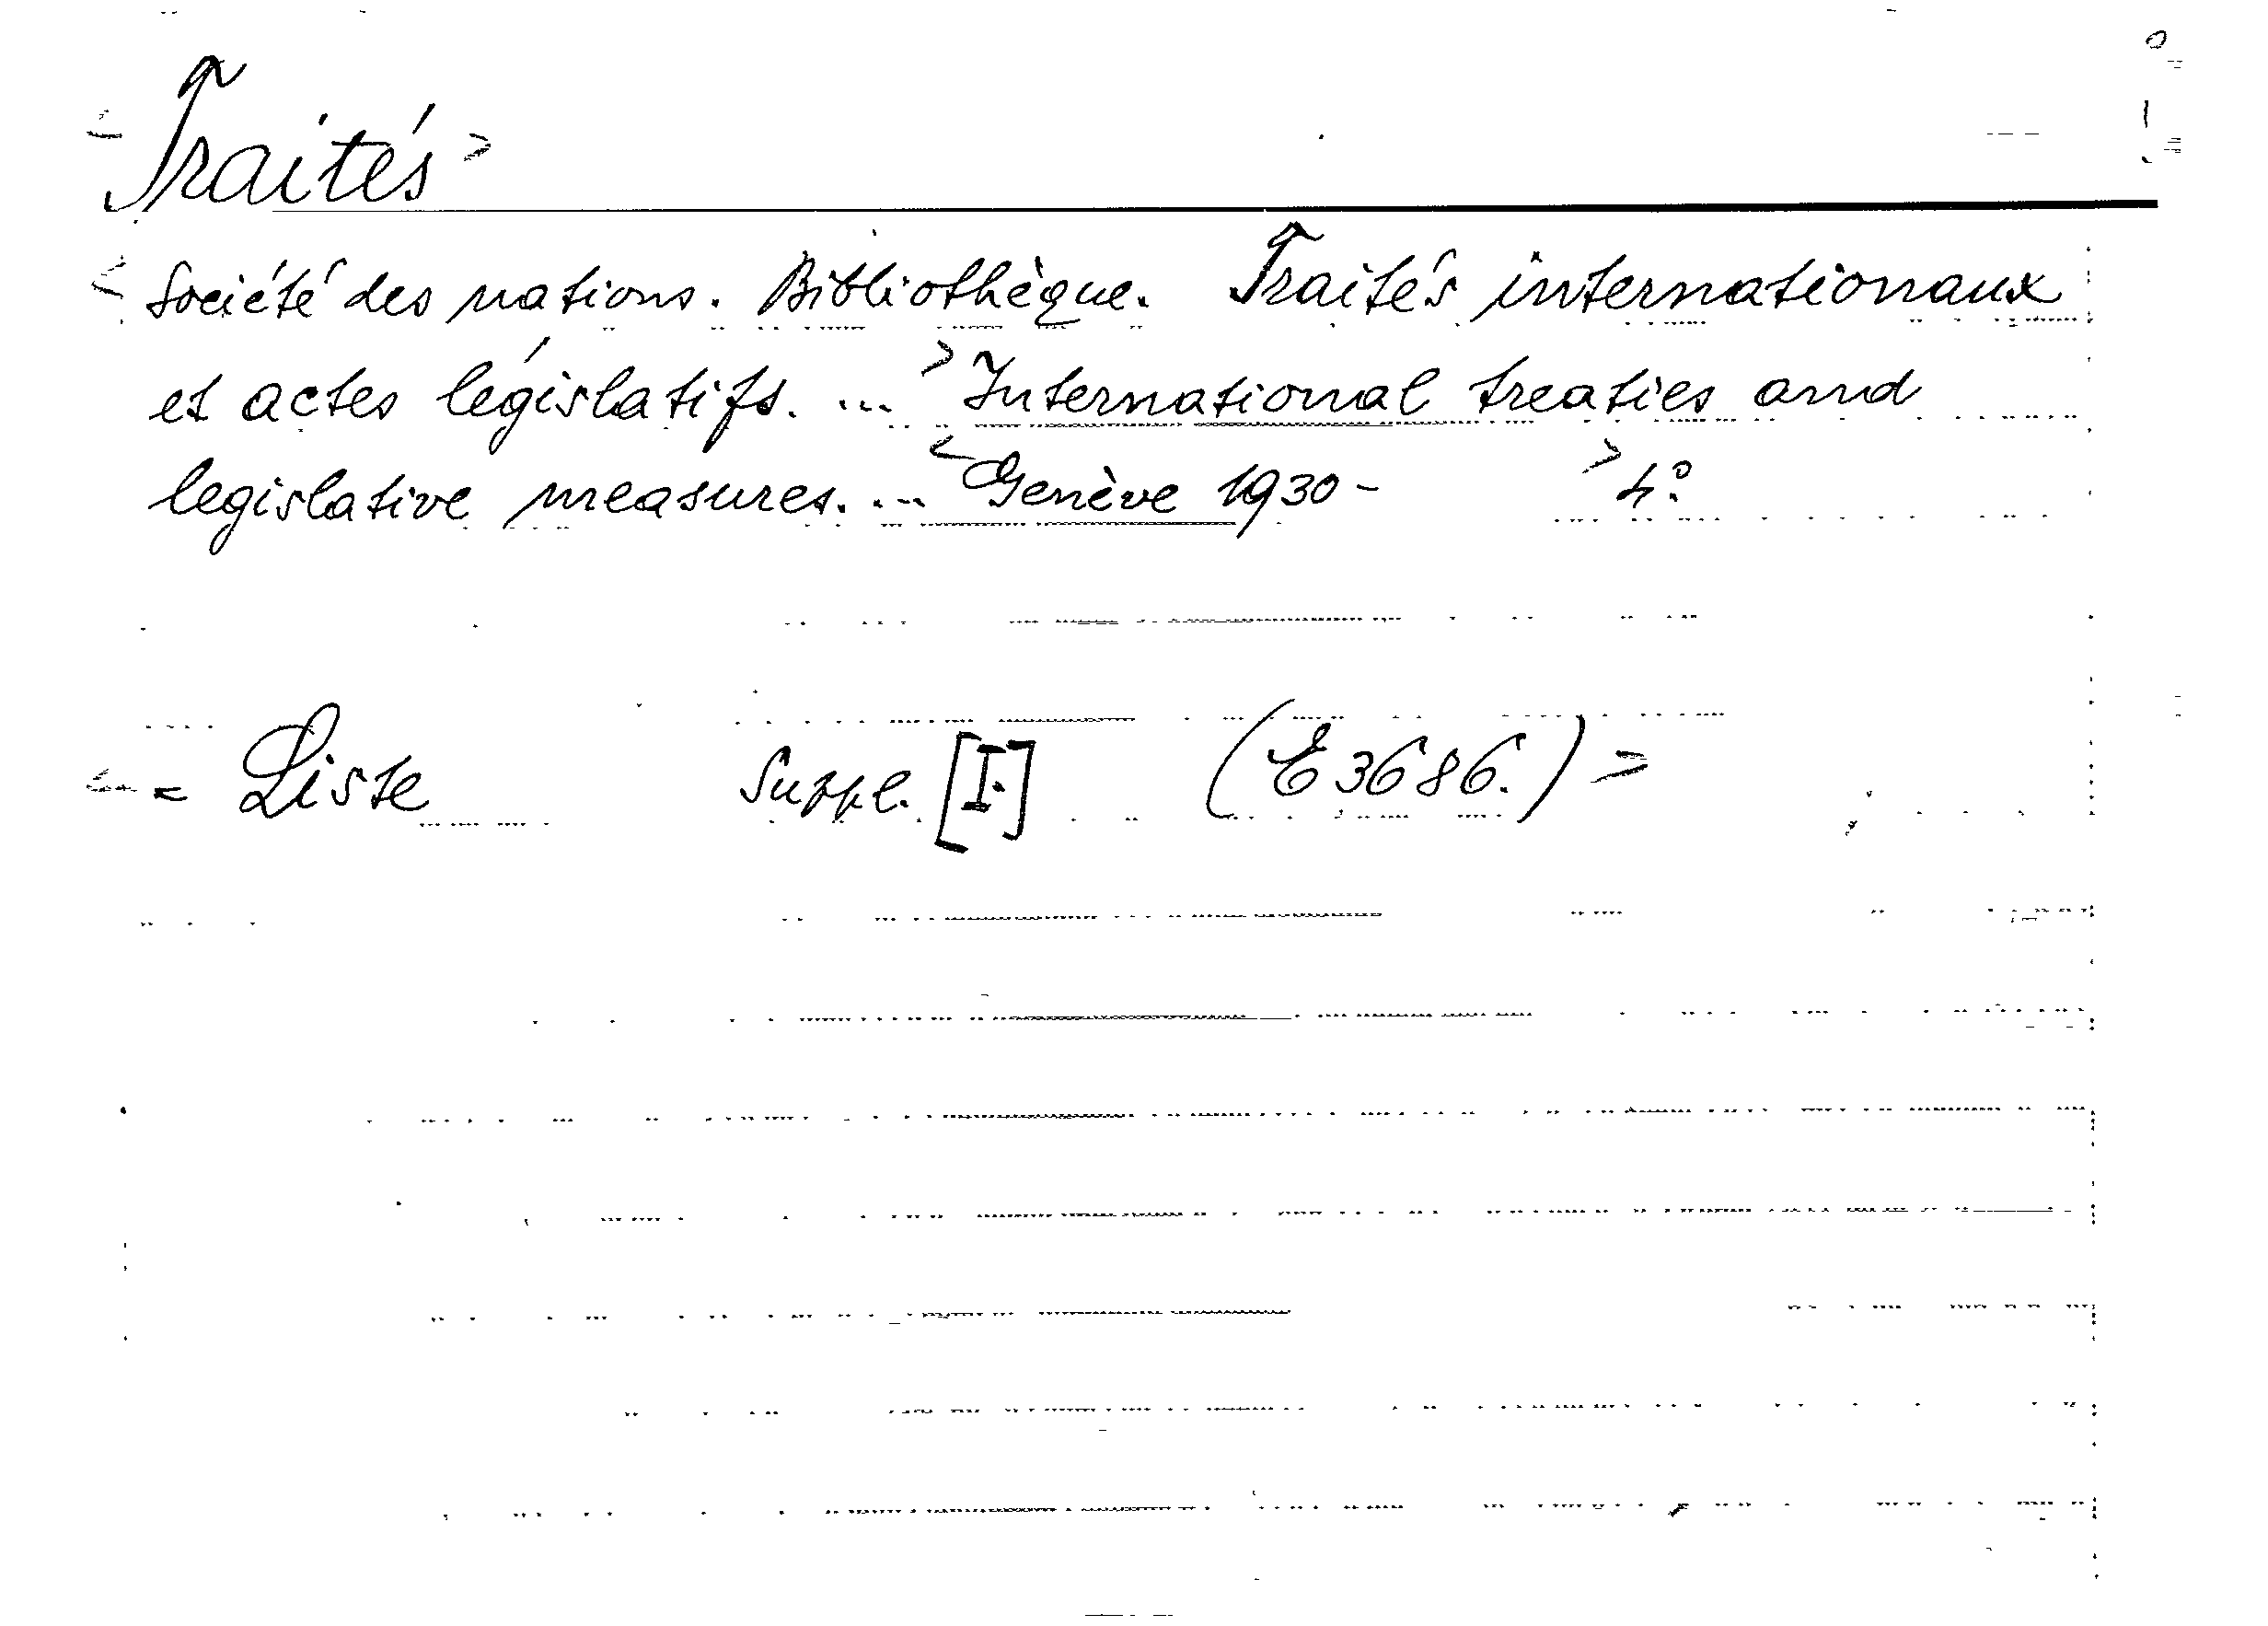 <Traités>
<Société des nations. Bibliothèque. Traités internationaux
et actes législatifs. ... > International treaties and
legislative measures. ... <Genève 1930- > 4:o
<-= Liste Suppl. [I.] (E 3686.) =>